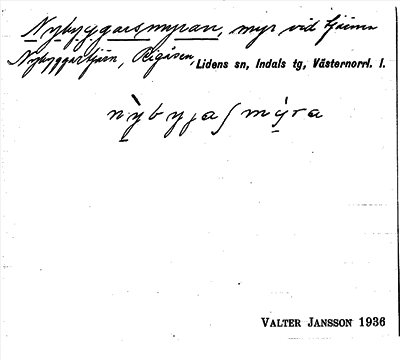 Nybyggarsmyran, myr vid tjärnen
Nybyggartjärn, Regåsen, Lidens sn, Indals tg, Västernorrl. l.
nỳbyjaʃmy̆ra
VALTER JANSSON 1936